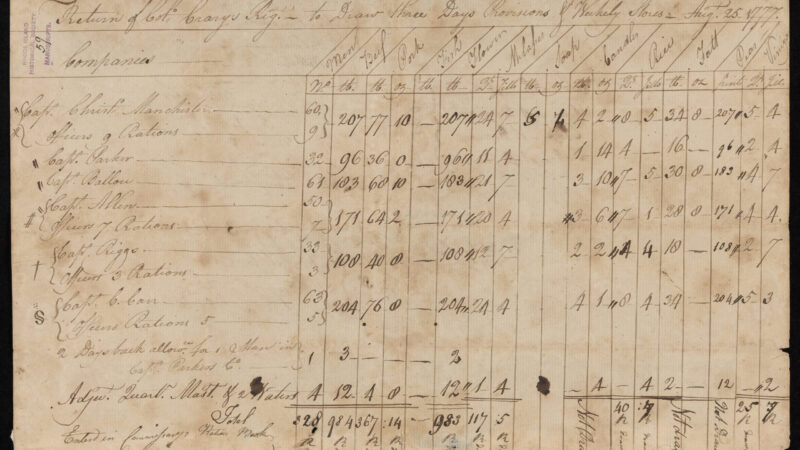 Return of Colo. Crarys Reg. — to Draw three Days Provisions & Weekly Stores — Augt. 25. 1777.
RHODE ISLAND HISTORICAL SOCIETY 59 MANUSCRIPTS
Companies Men Beef Pork Flower Soap Candles Rice Salt
No lb. lb. oz lb. lb. oz
Capt. Christr. Manchester 60 207 77 10 — 207 24 7 4 2 8 5 34 8 207 5 4
Officers 9 Rations 9
Capt. Parker 32 96 36 0 — 96 11 4 1 14 4 — 16 — 96 2 4
Capt. Ballou 61 183 68 10 — 183 21 7 3 10 7 5 30 8 183 4 7
Capt. Allen 50 171 64 2 — 171 20 4 3 6 7 1 28 8 171 4 4
Officers 7 Rations 7
† Capt. Riggs 33 108 40 8 — 108 12 7 2 2 4 4 18 — 108 2 7
Officers 3 Rations 3
§ Capt. C. Carr 63 204 76 8 — 204 24 4 4 1 8 4 34 — 204 5 3
Officers Rations 5 5
2 Days back allow. for 1 Man in 1 3 — — — 2
Capt. Parkers Co.
Adjut. Quartr. Mast. & 2 4 12 4 8 — 12 1 4 — 4 — 4 2 — 12 — 2
Total 328 984 367 14 — 983 117 5 40 25
Entred in Commissarys Book